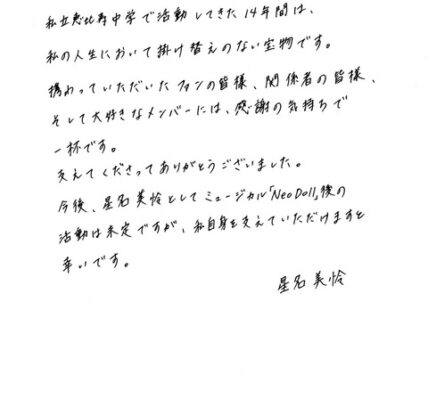 私立恵比寿中学で活動してきた14年間は、
私の人生において掛け替えのない宝物です。
携わっていただいたファンの皆様、関係者の皆様、
そして大好きなメンバーには、感謝の気持ちで
一杯です。
支えてくださってありがとうございました。
今後、星名美怜としてミュージカル「NeoDoll」後の
活動は未定ですが、私自身を支えていただけますと
幸いです。
星名美怜